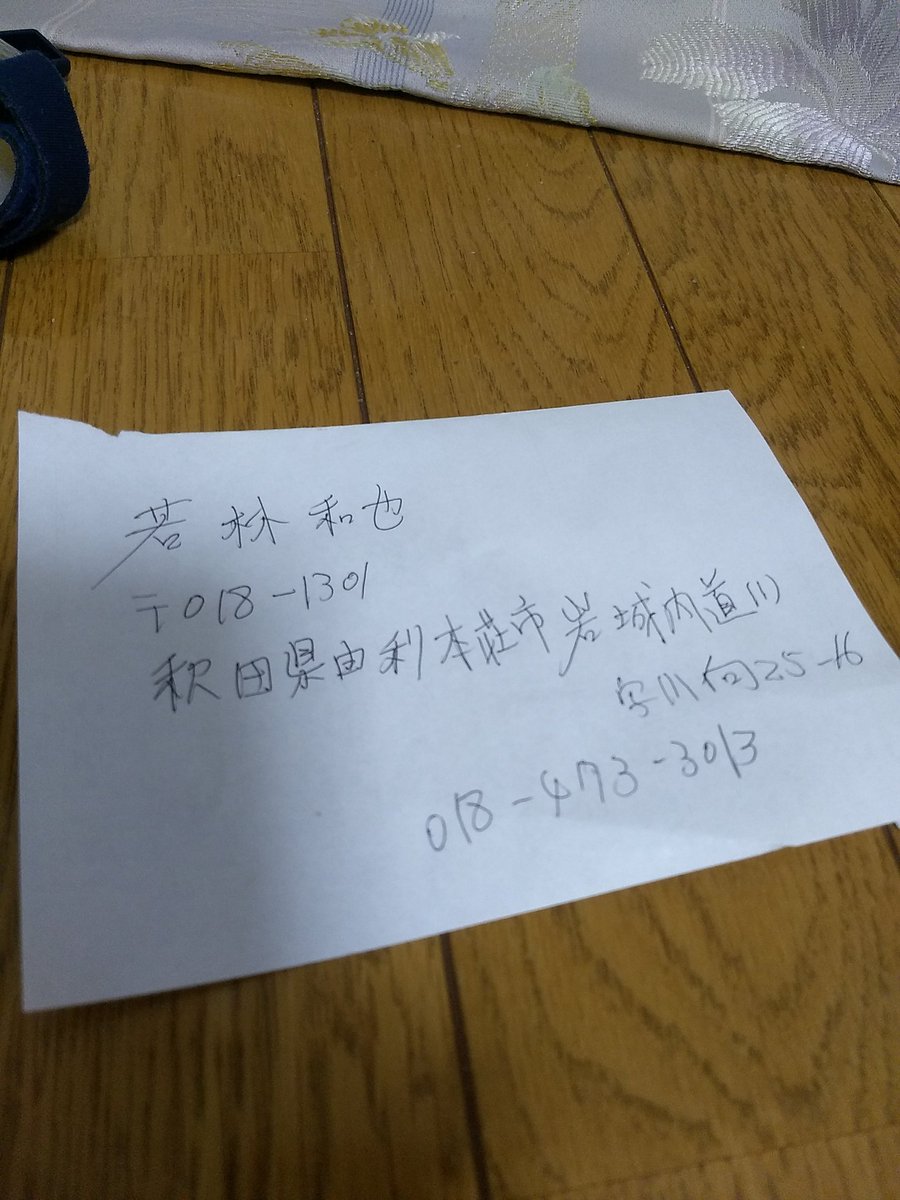 若林和也
〒018-1301
秋田県由利本荘市岩城内道川
字川向25-16
018-473-3013